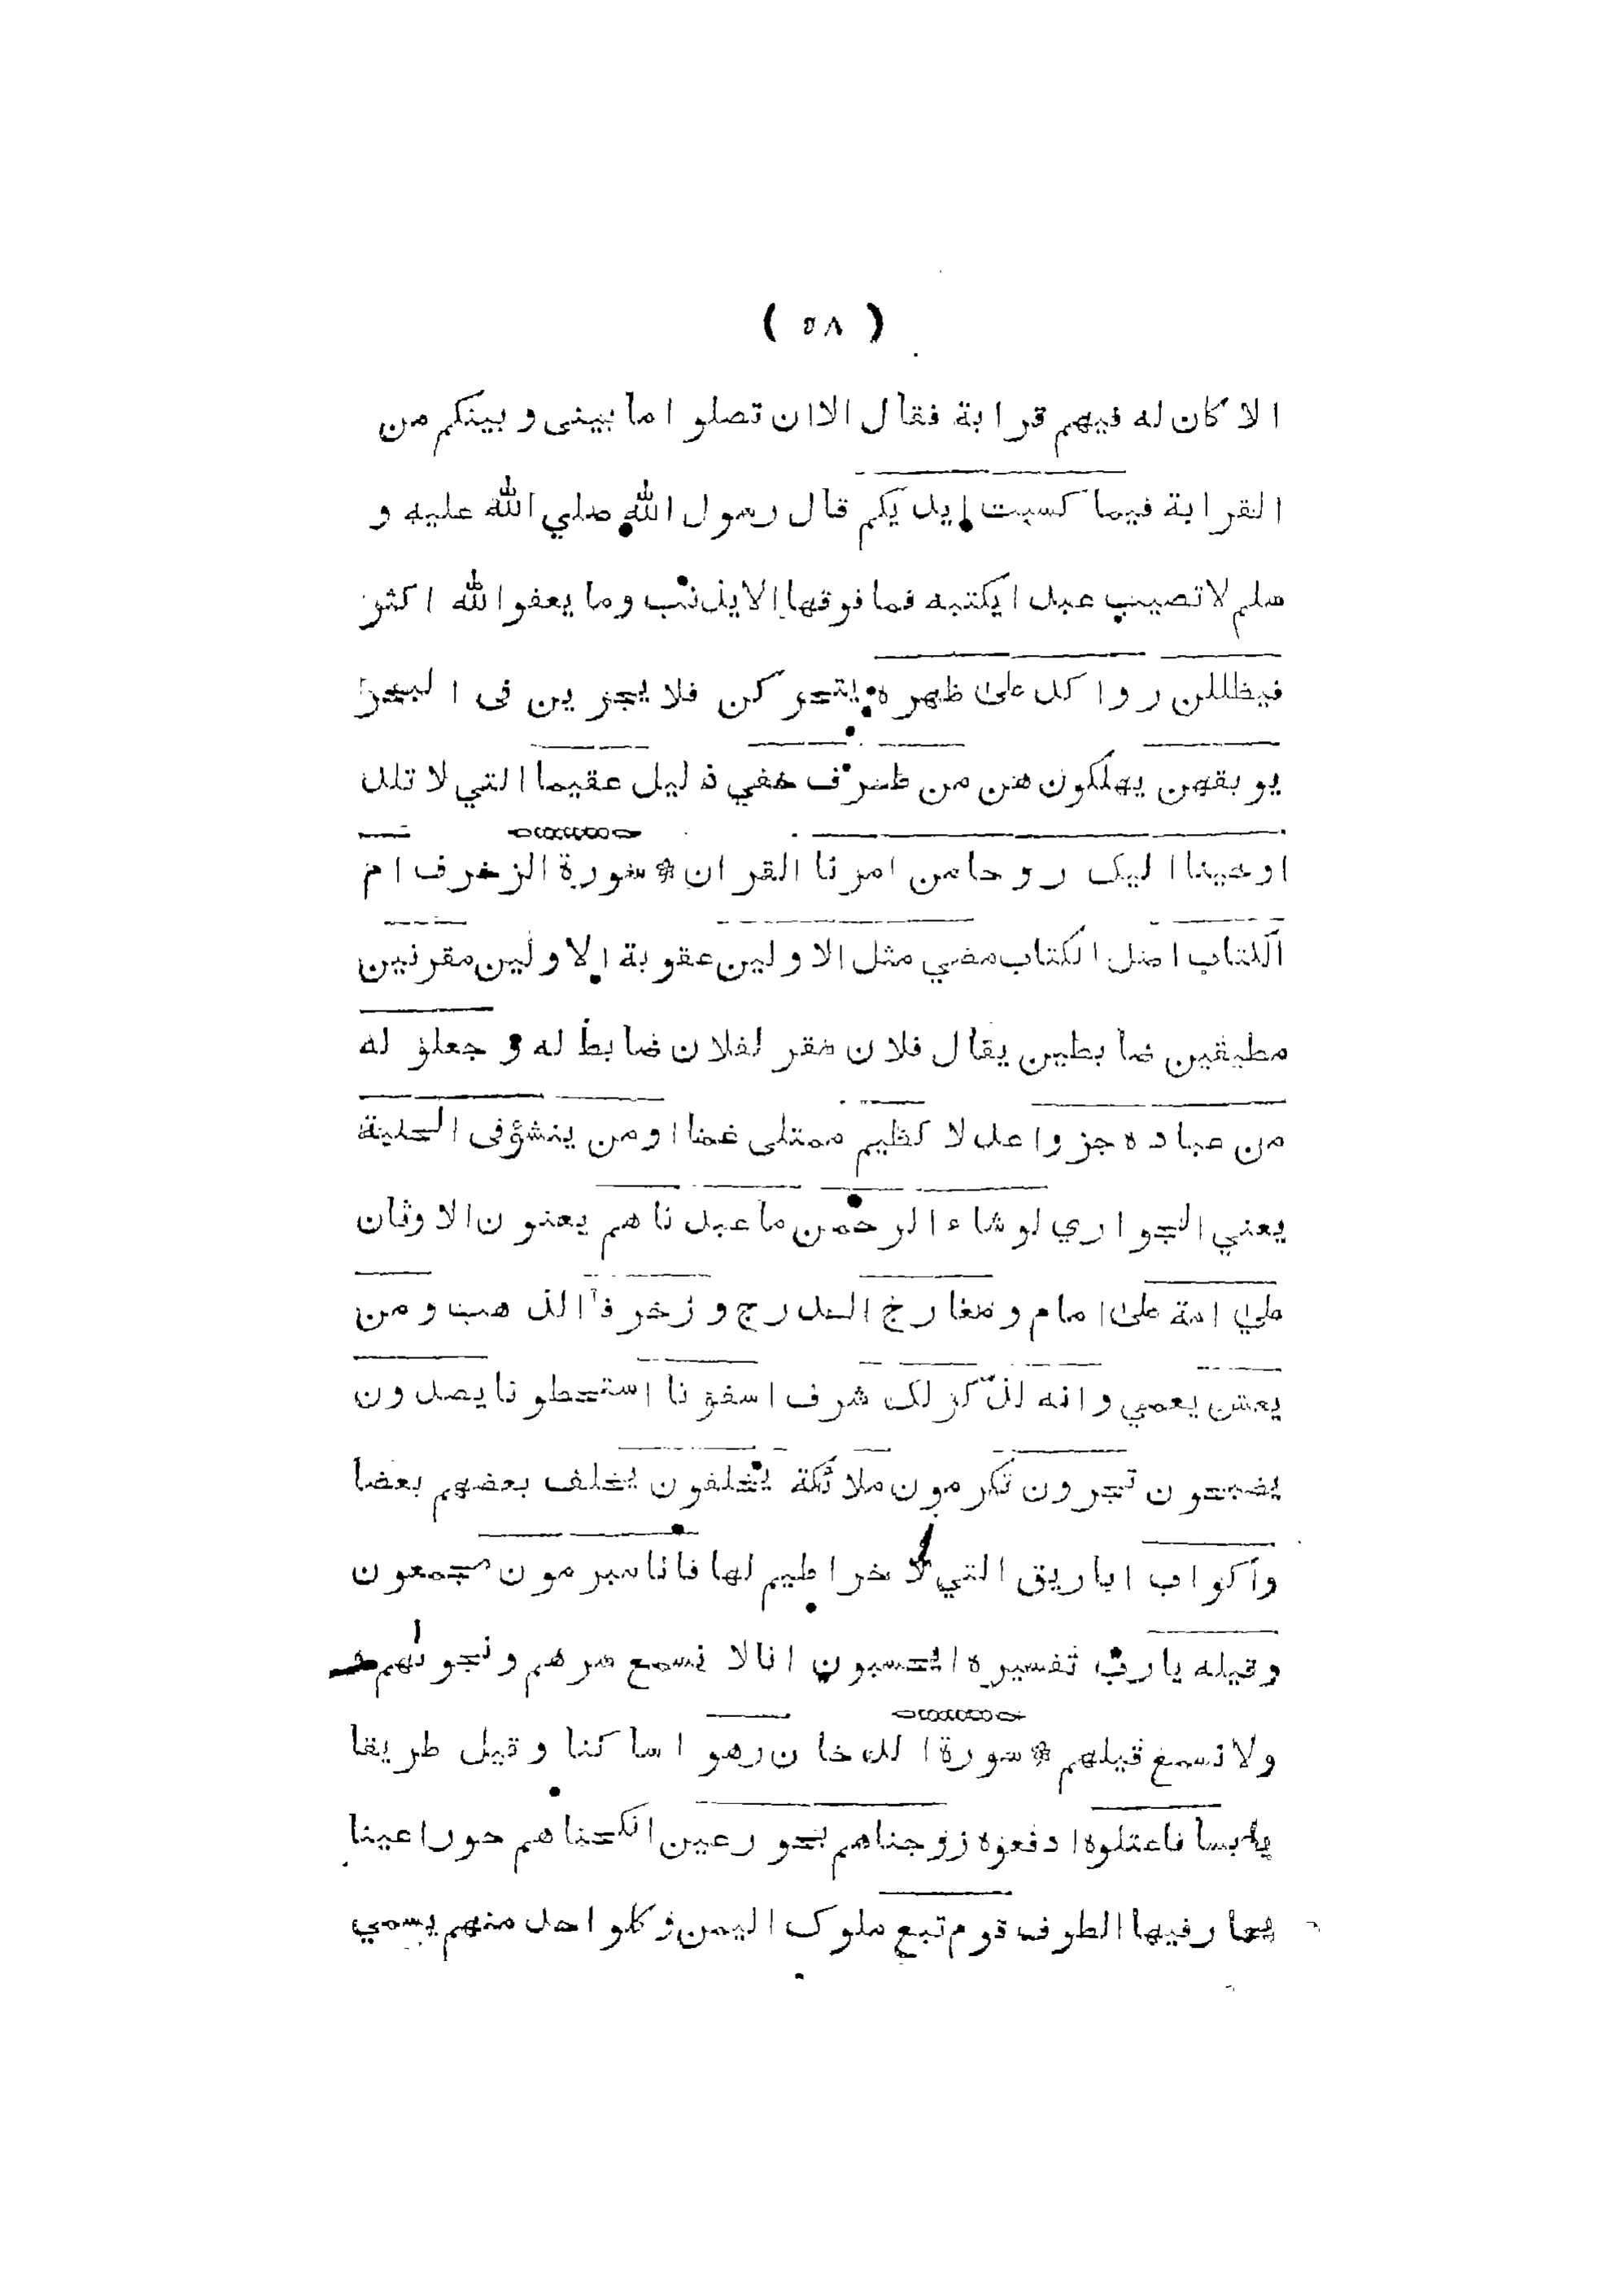 ( ٥٨ )
الا كان له فيهم قرابة فقال الا ان تصلوا ما بيني و بينكم من
القرابة فيما كسبت ايديكم قال رسول الله صلي الله عليه و
سلم لا تصيب عبدا يكتبه فما فوقها الا يذنب وما يعفو الله اكثر
فيظللن رواكد على ظهره يتحركن فلا يجرين فى البحر
يوبقهن يهلكون هن من طرف خفي ذليل عقيما التي لا تلد
اوحينا اليك روحا من امرنا القران * سورة الزخرف ام
الكتاب اصل الكتاب مضي مثل الاولين عقوبة الاولين مقرنين
مطيقين ضابطين يقال فلان مقر لفلان ضابط له و جعلو له
من عباده جزوا عدلا كظيم ممتلى غما اومن ينشؤ فى الحلية
يعني الجواري لو شاء الرحمن ما عبدناهم يعنون الاوثان
علي امة على امام و معارج الدرج و زخرفا الذهب و من
يعش يعمي و انه لذكر لك شرف اسفونا استخطونا يصدون
يضجون تجرون تكرمون ملائكة يخلفون يخلف بعضهم بعضا
واكواب اباريق التي لا خراطيم لها فانا مبرمون مجمعون
وقيله يا رب تفسيره ايحسبون انا لا نسمع سرهم و نجوئهم
ولا نسمع قيلهم * سورة الدخان رهوا ساكنا و قيل طريقا
يابسا فاعتلوه ادفعوه زوجناهم بحور عين انكحناهم حورا عينا
يحار فيها الطرف قوم تبع ملوك اليمن و كلواحد منهم يسمي